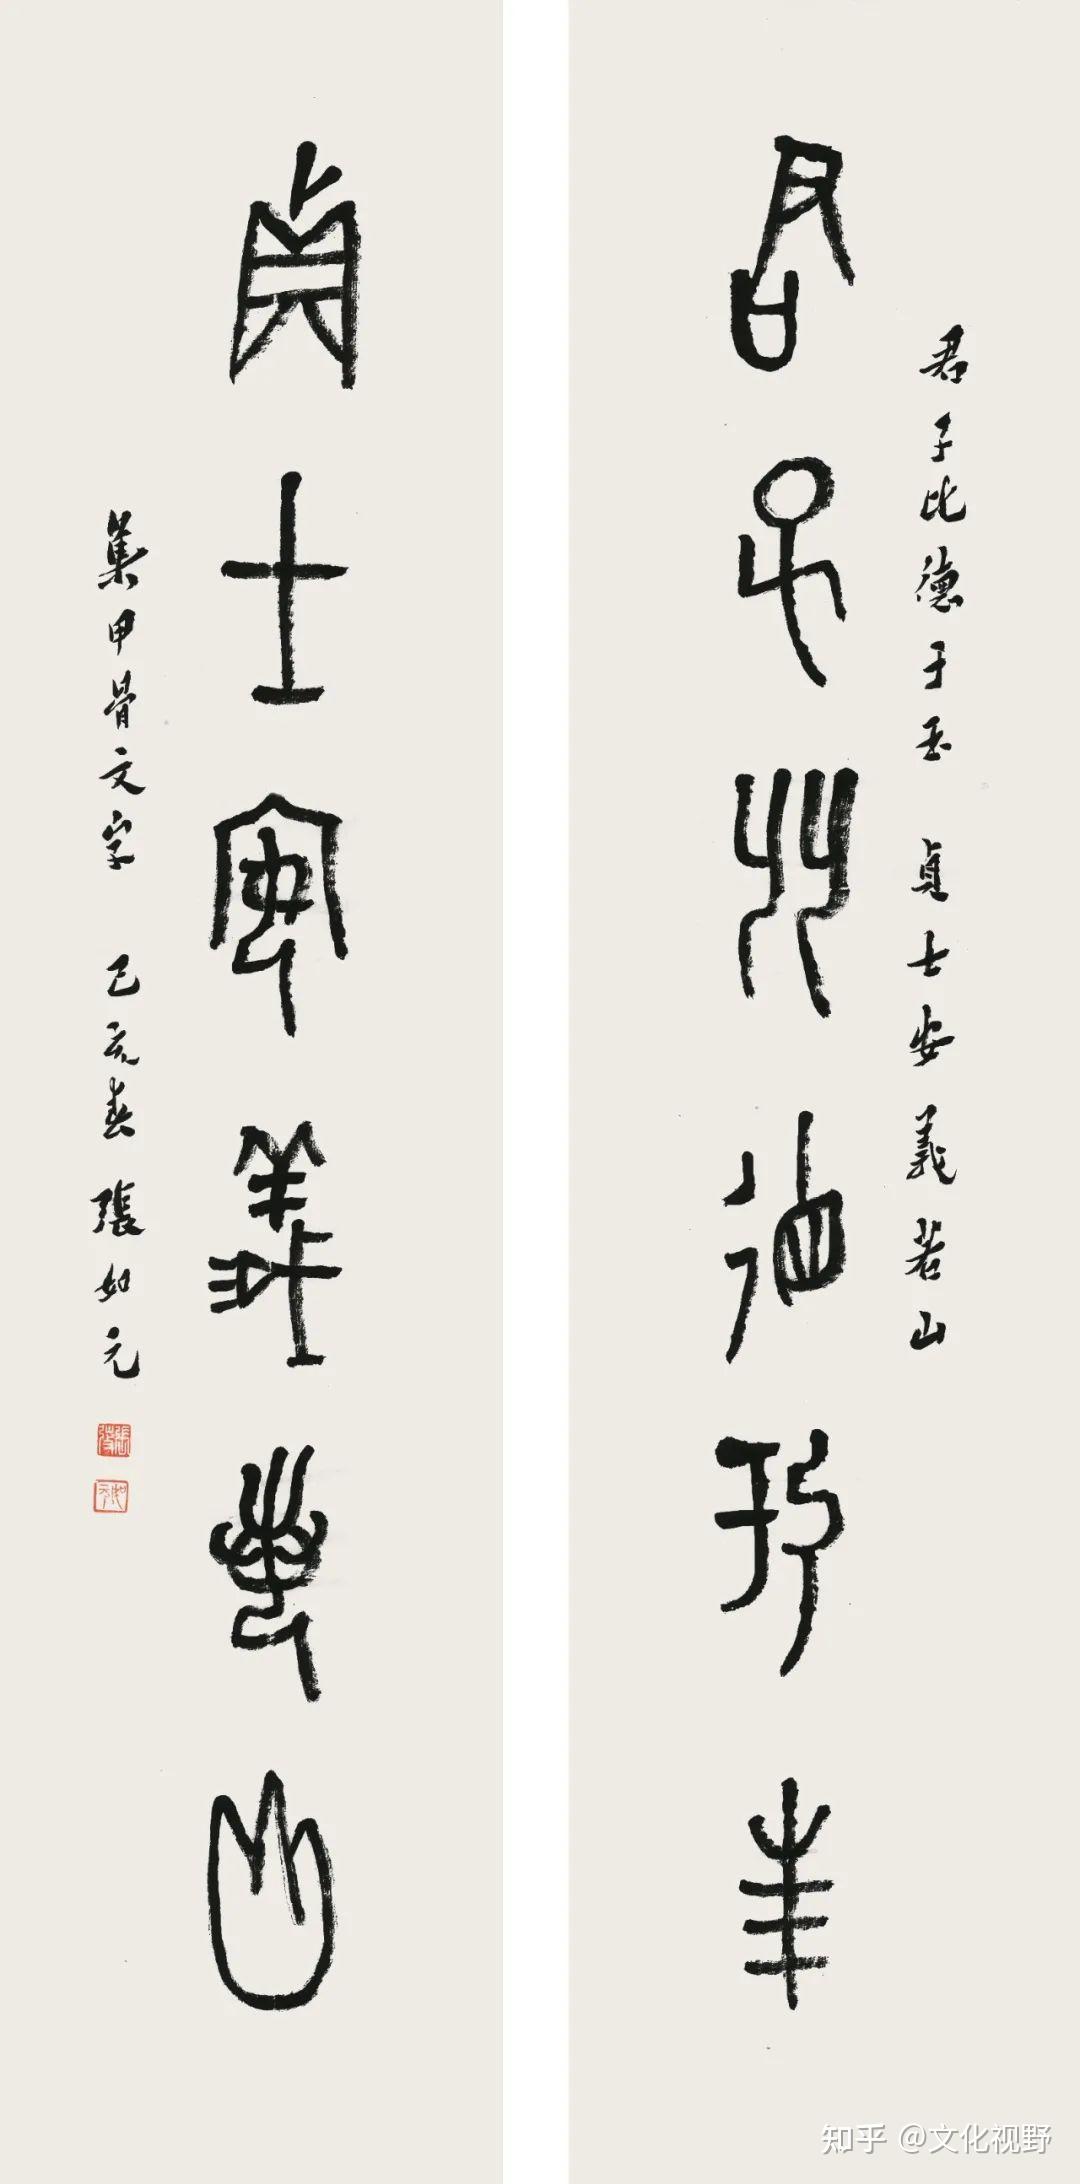 君子比德于玉
君子比德于玉 貞士安義若山
貞士安義若山
集甲骨文字 己亥春 張如元
知乎 @文化视野